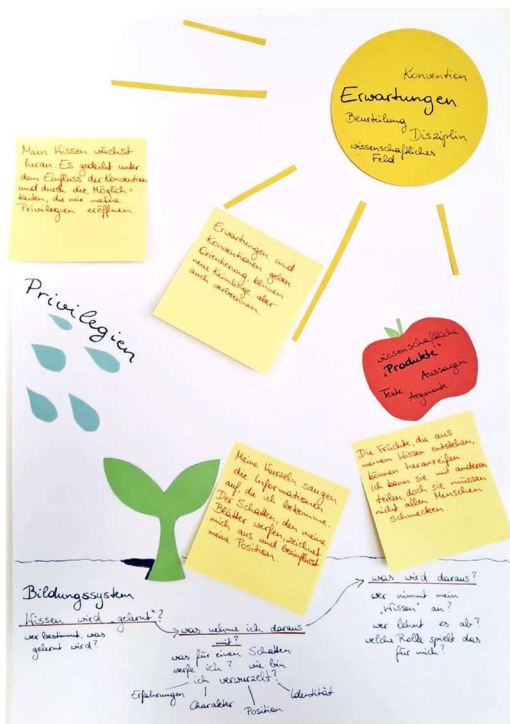 Konvention
Erwartungen
Beurteilung
Disziplin
wissenschaftliches
Feld
Mein Wissen wächst
heran. Es gedeiht unter
dem Einfluss der Konvention
und durch die Möglich-
keiten, die mir meine
Privilegien eröffnen.
Erwartungen und
Konventionen geben
Orientierung, können
neue Keimlinge aber
auch verbrennen.
Privilegien
wissenschaftliche
"Produkte"
Texte Aussagen
Argumente
Meine Wurzeln saugen
die Informationen
auf, die ich bekomme.
Der Schatten, den meine
Blätter werfen, zeichnet
mich aus und beeinflusst
meine Position.
Die Früchte, die aus
meinem Wissen entstehen,
können heranreifen.
Ich kann sie mit anderen
teilen, doch sie müssen
nicht allen Menschen
schmecken.
Bildungssystem
Wissen wird "gelernt"?
wer bestimmt, was
gelernt wird?
was nehme ich daraus
mit?
was für einen Schatten
werfe ich? wie bin
ich verwurzelt?
Erfahrungen
Charakter
Position
Identität
was wird daraus?
wer nimmt mein
"Wissen" an?
wer lehnt es ab?
welche Rolle spielt das
für mich?